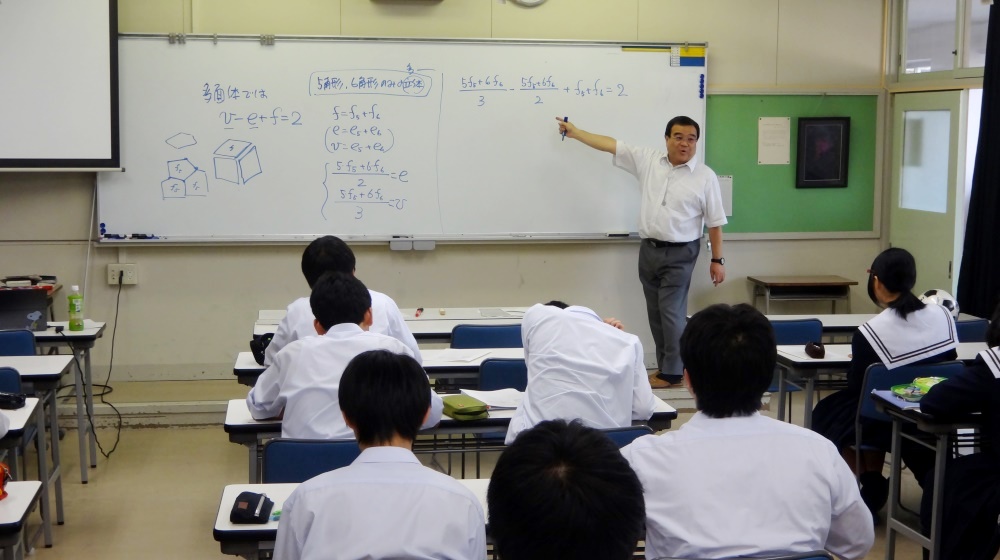 多面体では
v-e+f=2
5角形、6角形
f=f₅+f₆
e=e₅+e₆
v=e₅+e₆
5f₅+6f₆/2=e
5f₅+6f₆/3=v
5f₅+6f₆/3 - 5f₅+6f₆/2 + f₅+f₆=2